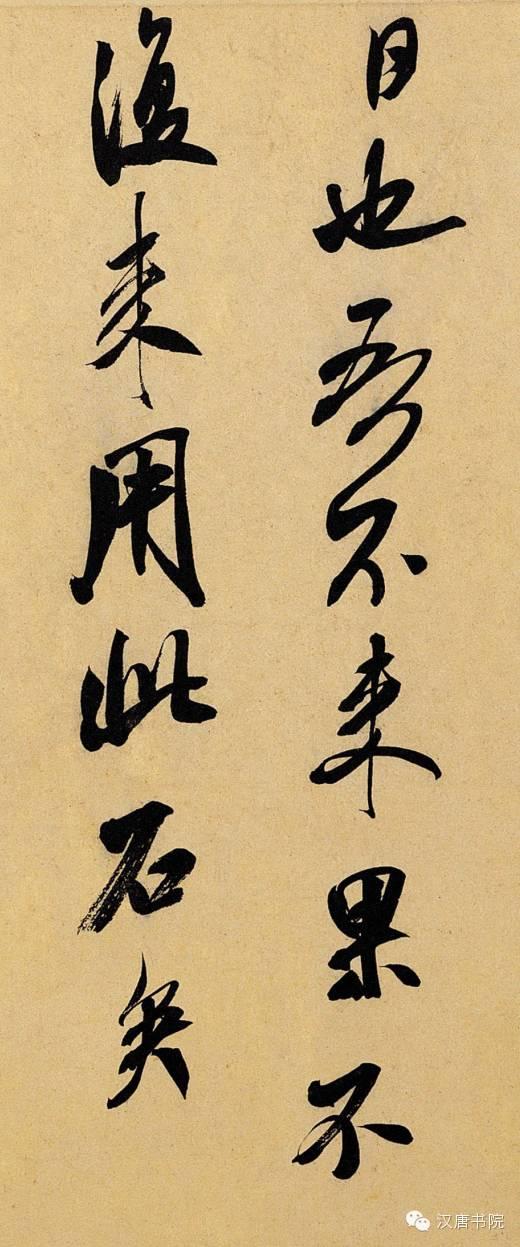 日也吾不来果不
復来用此石矣
汉唐书院